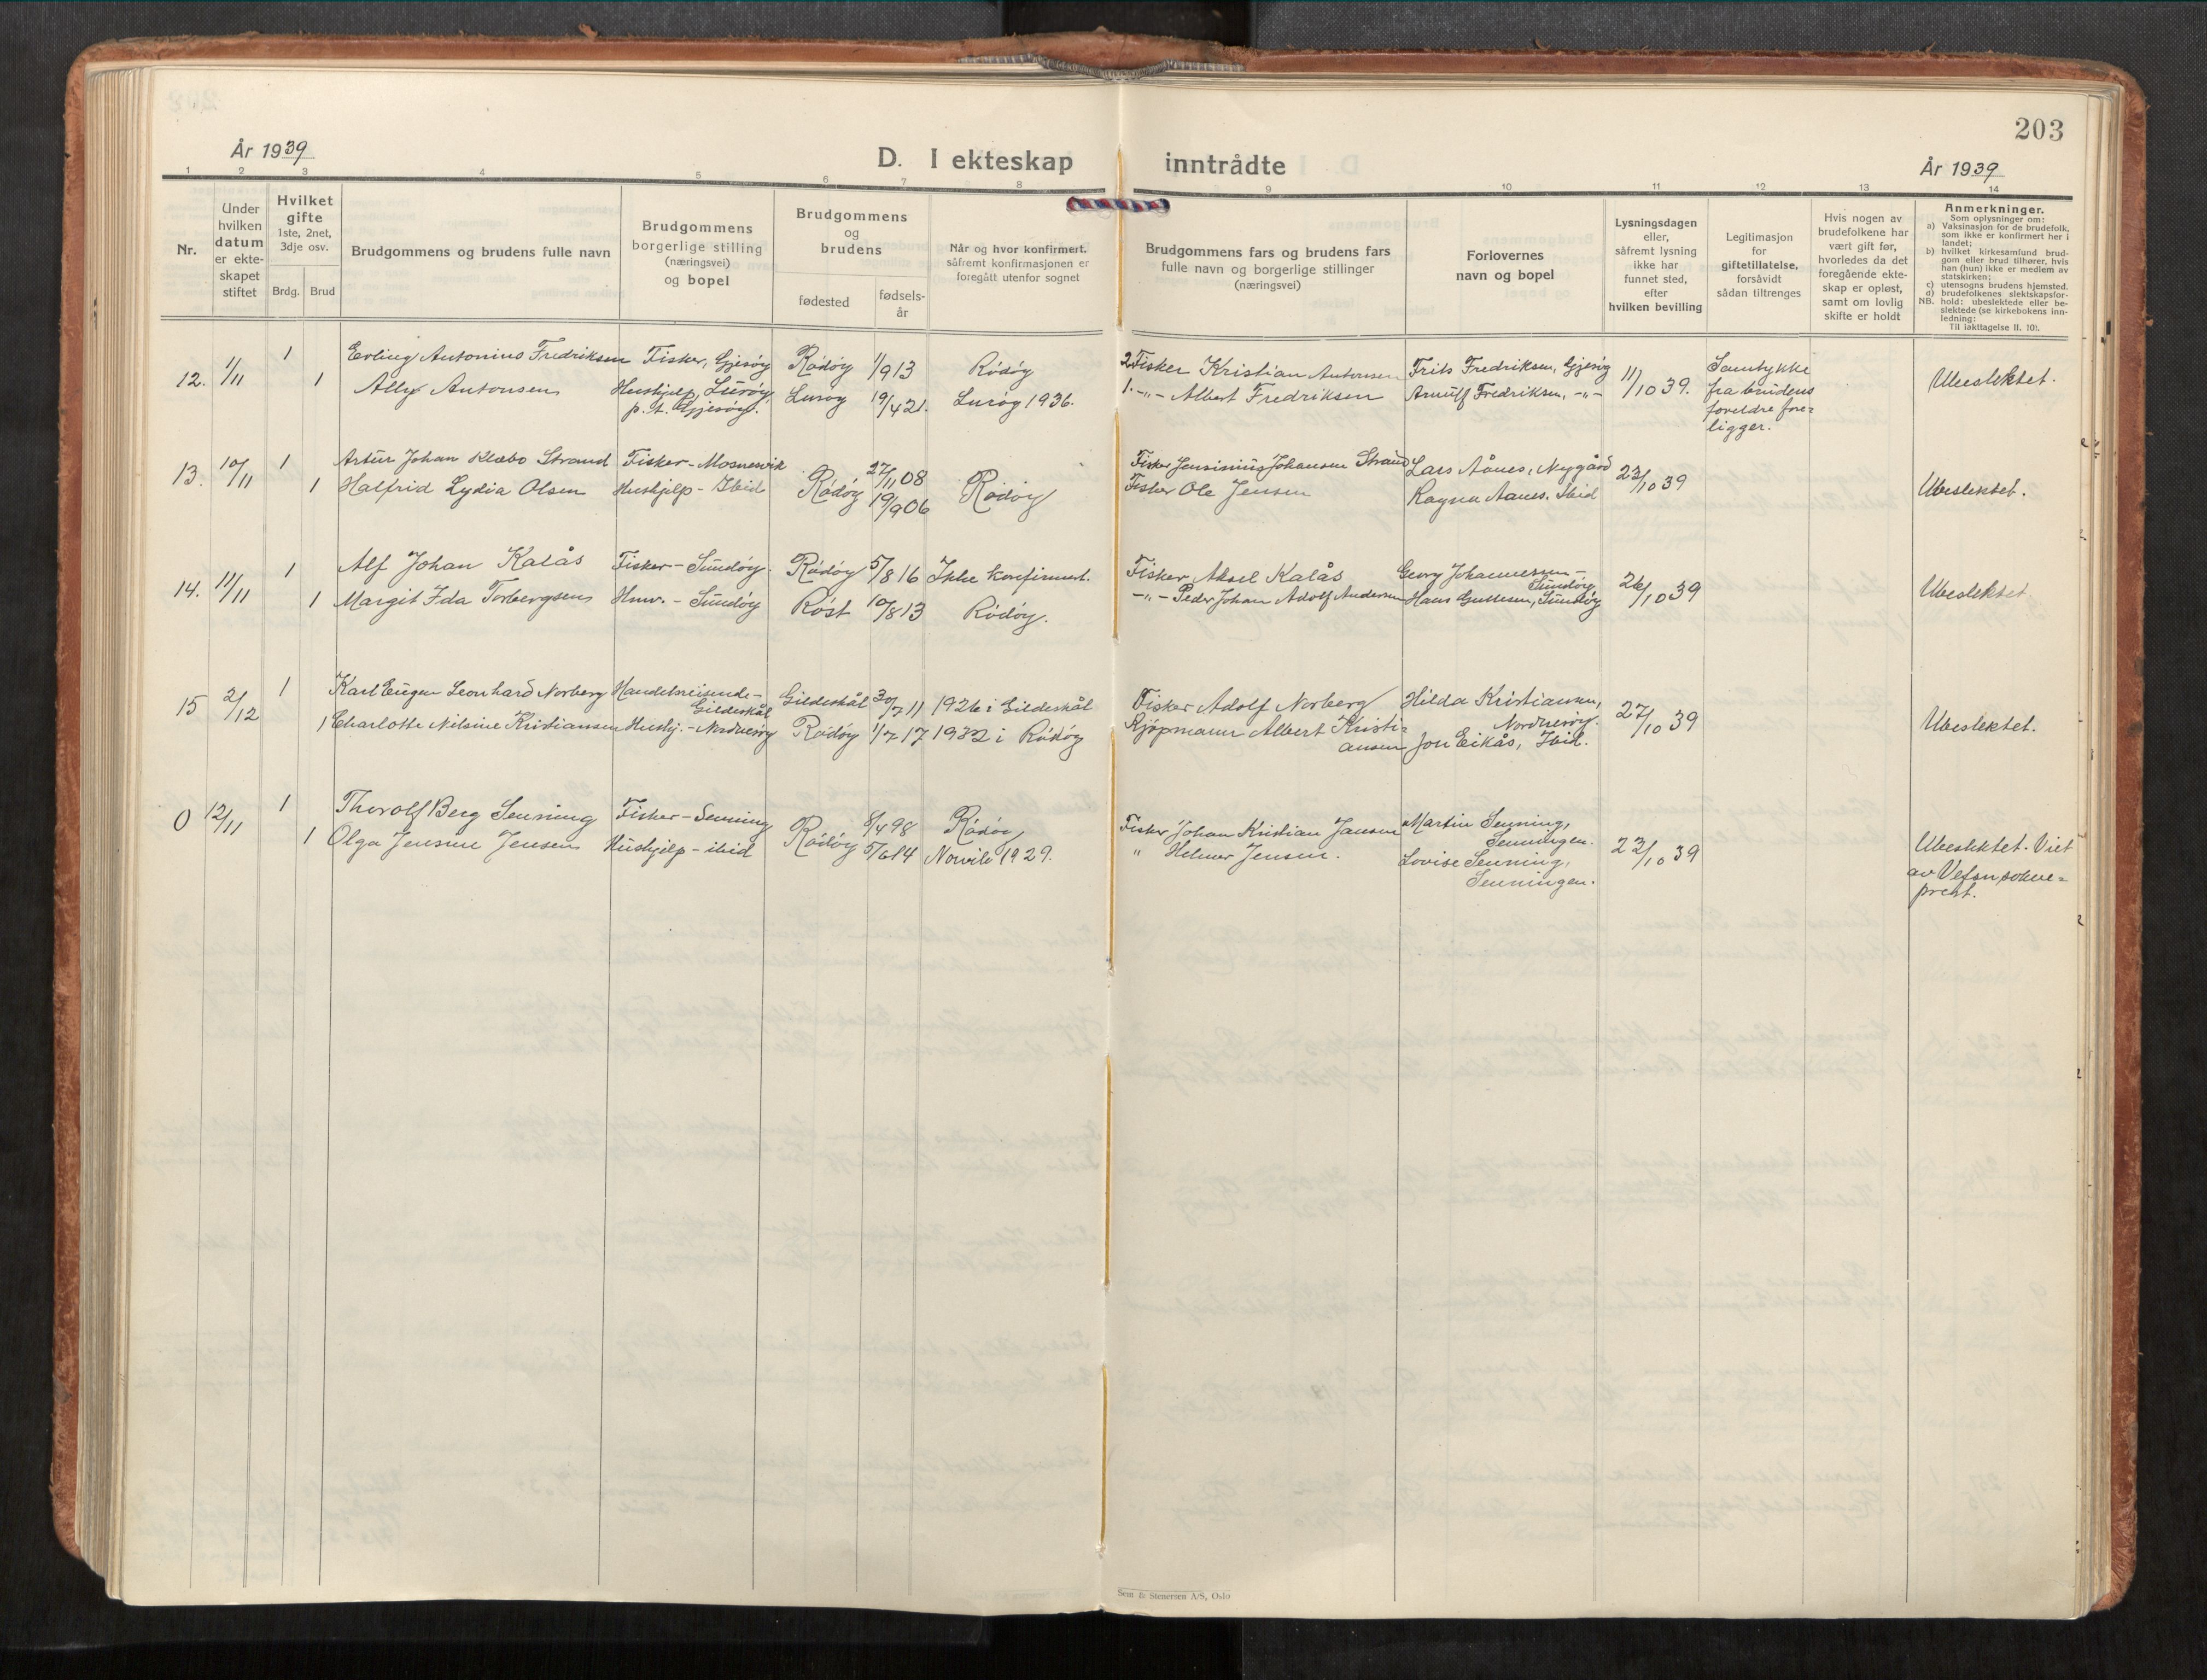 203
År 1939
D. I ekteskap inntrådte
År 1939
1 2 3 4 5 6 7 8 9 10 11 12 13 14
Nr.
Under hvilken datum er ekte-skapet stiftet
Hvilket gifte 1ste, 2net, 3dje osv.
Brdg. Brud
Brudgommens og brudens fulle navn
Brudgommens borgerlige stilling (næringsvei) og bopel
Brudgommens og brudens
fødested
fødsels-år
Når og hvor konfirmert, såfremt konfirmasjonen er foregått utenfor sognet
Brudgommens fars og brudens fars fulle navn og borgerlige stillinger (næringsvei)
Forlovernes navn og bopel
Lysningsdagen eller, såfremt lysning ikke har funnet sted, efter hvilken bevilling
Legitimasjon for giftetillatelse, forsåvidt sådan tiltrenges
Hvis nogen av brudefolkene har vært gift før, hvorledes da det foregående ekte-skap er opløst, samt om lovlig skifte er holdt
Anmerkninger.
Som oplysninger om:
a) Vaksinasjon for de brudefolk, som ikke er konfirmert her i landet;
b) hvilket kirkesamfund brud-gom eller brud tilhører, hvis han (hun) ikke er medlem av statskirken;
c) utensogns brudens hjemsted.
d) brudefolkenes slektskapsfor-
NB. hold: ubeslektede eller be-slektede (se kirkebokens inn-ledning:
Til iakttagelse II. 10).
12. 1/11 1 Erling Antonius Fredriksen Fisker, Gjesøy Rödöy 1/9 13 Rödöy 2 Fisker Kristian Antonsen Frits Fredriksen, Gjesöy 11/10 39. Samtykke fra brudens foreldre fore=ligger. Ubeslektet.
1 Ally Antonsen Hushjelp, Luröy p.t. Gjesöy. Luröy 19/4 21. Luröy 1936. 1. -"- Albert Fredriksen Arnulf Fredriksen, -"-
13. 10/11 1 Artur Johan Klæbo Strand Fisker - Mosnesvik Rödöy 27/11 08 Rödöy Fisker Jensinius Johansen Strand Lars Aånes, Nygård 23/10 39 Ubeslektet.
1 Halfrid Lydia Olsen Hushjelp - Ibid 19/9 06 Fisker Ole Jensen Ragna Aanes. Ibid
14. 11/11 1 Alf Johan Kalås Fisker - Sundöy. Rödöy 5/8 16 Ikke konfirmert. Fisker Aksel Kalås Georg Johannessen - Sundöy 26/10 39 Ubeslektet.
1 Margit Ida Torbergsen Hmv. - Sundöy Röst 10/8 13 Rödöy. -"- Peder Johan Adolf Andersen Hans Gullesen, Sundöy
15 2/12 1 Karl Eugen Leonhard Norberg Handelsreisende - Gildeskål Gildeskål 30/7 11 1926 i Gildeskål Fisker Adolf Norberg Hilda Kristiansen, Nordnesöy. 27/10 39 Ubeslektet.
1 Charlotte Nelsine Kristiansen Hushj. - Nordnesöy Rödöy 1/7 17 1932 i Rödöy Kjöpmann Albert Kristi=ansen Jon Eikås, Ibid.
0 12/11 1 Thorolf Berg Senning Fisker - Senning Rödöy 8/4 98 Rödöy Fisker Johan Kristian Jansen Martin Senning, Senningen. 23/10 39 Ubeslektet. Viet av Vefsn sokne=prest.
1 Olga Jensine Jensen Hushjelp - ibid 5/6 14 1929. " Helmer Jensen. Lovise Senning, Senningen.
Sem & Stenersen A/S, Oslo